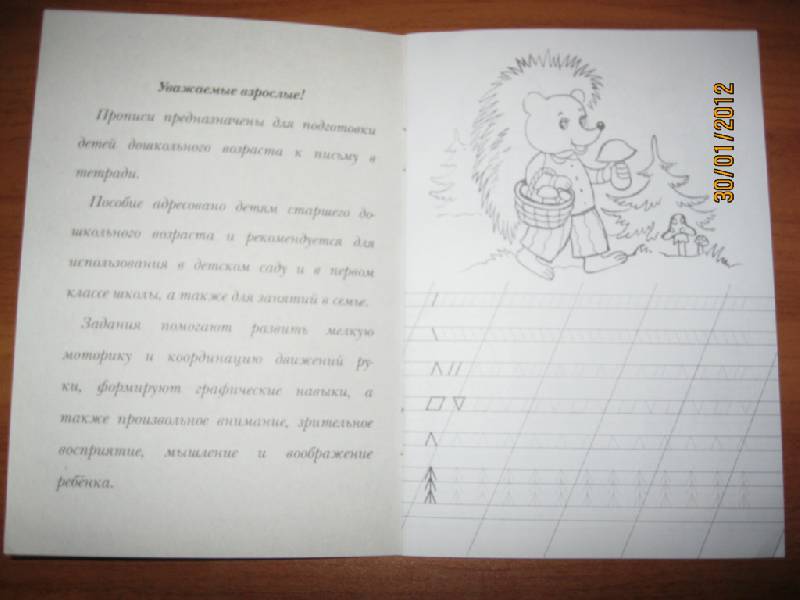 Уважаемые взрослые!
Прописи предназначены для подготовки
детей дошкольного возраста к письму в
тетради.
Пособие адресовано детям старшего до-
школьного возраста и рекомендуется для
использования в детском саду и в первом
классе школы, а также для занятий в семье.
Задания помогают развить мелкую
моторику и координацию движений ру-
ки, формируют графические навыки, а
также произвольное внимание, зрительное
восприятие, мышление и воображение
ребёнка.
30/01/2012